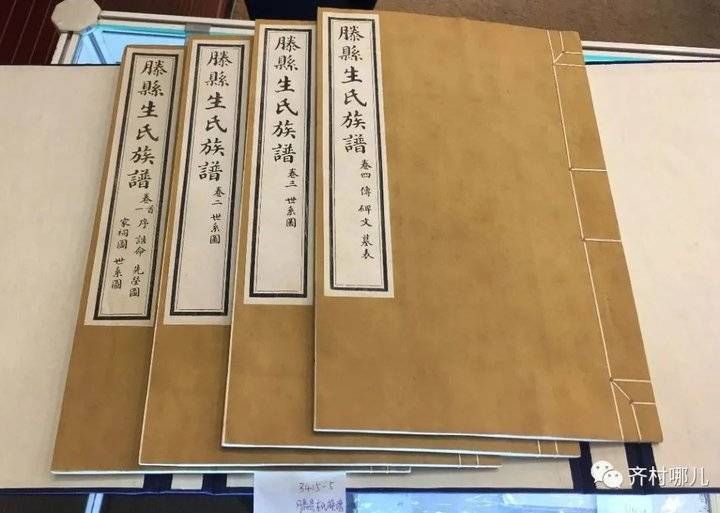 滕縣生氏族譜
卷首
卷一
序 誥命 先塋圖
家祠圖 世系圖
滕縣生氏族譜
卷二 世系圖
滕縣生氏族譜
卷三 世系圖
滕縣生氏族譜
卷四 傳 碑文 墓表
3415-5
齐村哪儿